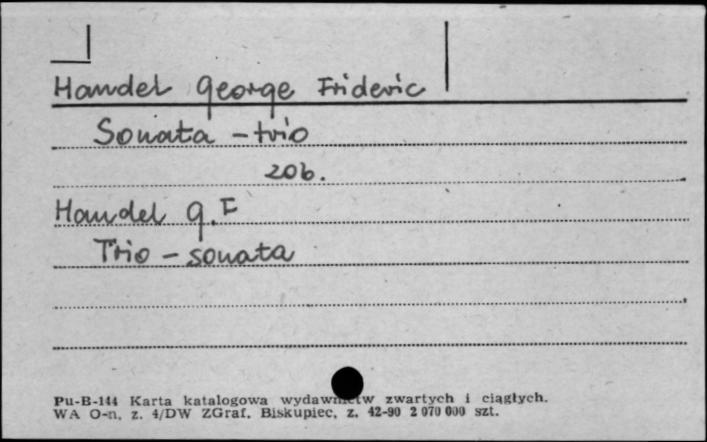 Handel George Frideric
Sonata - trio
206.
Handel G.F
Trio - sonata
Pu-B-144 Karta katalogowa wydawnictw zwartych i ciągłych.
WA O-n, z. 4/DW ZGraf. Biskupiec, z. 42-90 2 070 000 szt.